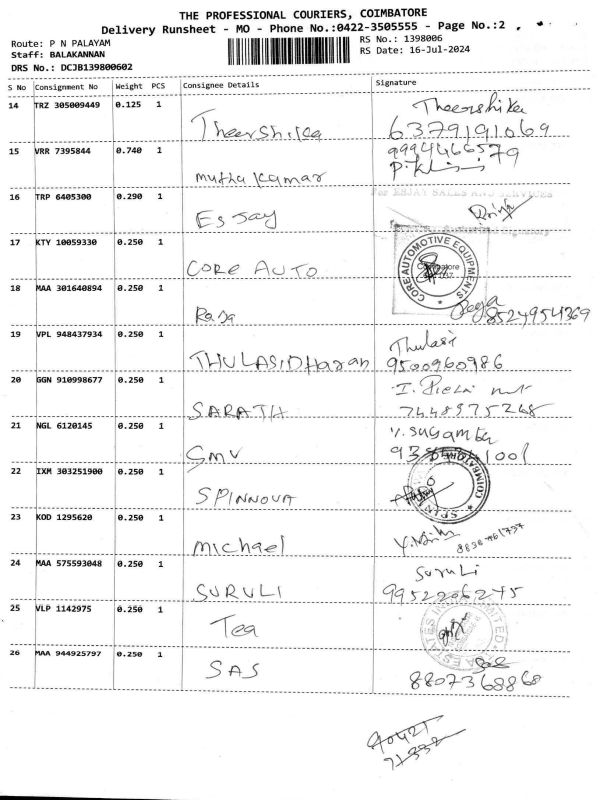 THE PROFESSIONAL COURIERS, COIMBATORE
Delivery Runsheet - MO - Phone No.:0422-3505555 - Page No.:2
Route: P N PALAYAM
RS No.: 1398006
Staff: BALAKANNAN
RS Date: 16-Jul-2024
DRS No.: DCJB139800602
S No Consignment No Weight PCS Consignee Details Signature
14 TRZ 305009449 0.125 1 Theershika Theershika
6379191069
15 VRR 7395844 0.740 1 muthu kumar 9994466579
16 TRP 6405300 0.290 1 Essay
For ESJAY SALES AND SERVICES
17 KTY 10059330 0.250 1 CORE AUTO
CORE AUTOMOTIVE EQUIPMENTS
18 MAA 301640894 0.250 1 Raja Raja
8524954369
19 VPL 948437934 0.250 1 THULASIDHaran Thulasi
9500960986
20 GGN 910998677 0.250 1 SARATH
7448975248
21 NGL 6120145 0.250 1 GMV V. Sugamba
22 IXM 303251900 0.250 1 SPINNOVA
COIMBATORE
23 KOD 1295620 0.250 1 michael
24 MAA 575593048 0.250 1 SURULI SuruLi
9952206275
25 VLP 1142975 0.250 1 Tea
26 MAA 944925797 0.250 1 SAS
8807368868